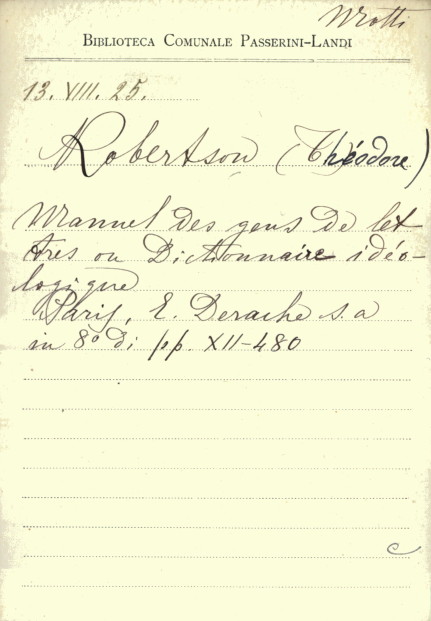 Mrotti
BIBLIOTECA COMUNALE PASSERINI-LANDI
13. VIII. 25.
Robertson (Théodore)
Manuel des gens de let-
tres ou Dictionnaire idéo-
logique
Paris, E. Derache s. a
in 8º di pp. XII-480
C